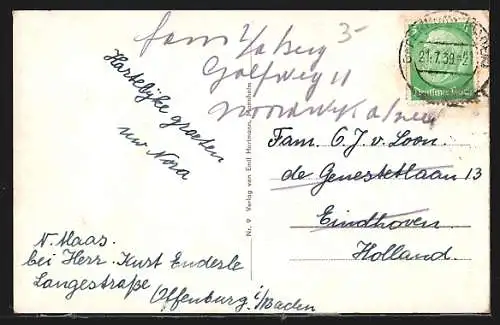 fam v/d Berg
Golfweg 11
Noordwijk a/zee
3-
Hartelijke groeten
uw Nora
N. Maas.
bei Herr. Kurt Enderle
Langestraße
Offenburg i/Baden
Nr. 9 Verlag von Emil Hartmann, Mannheim
Fam. C. J. v. Loon.
de Genestetlaan 13
Eindhoven.
Holland.
21.7.39
Deutsches Reich